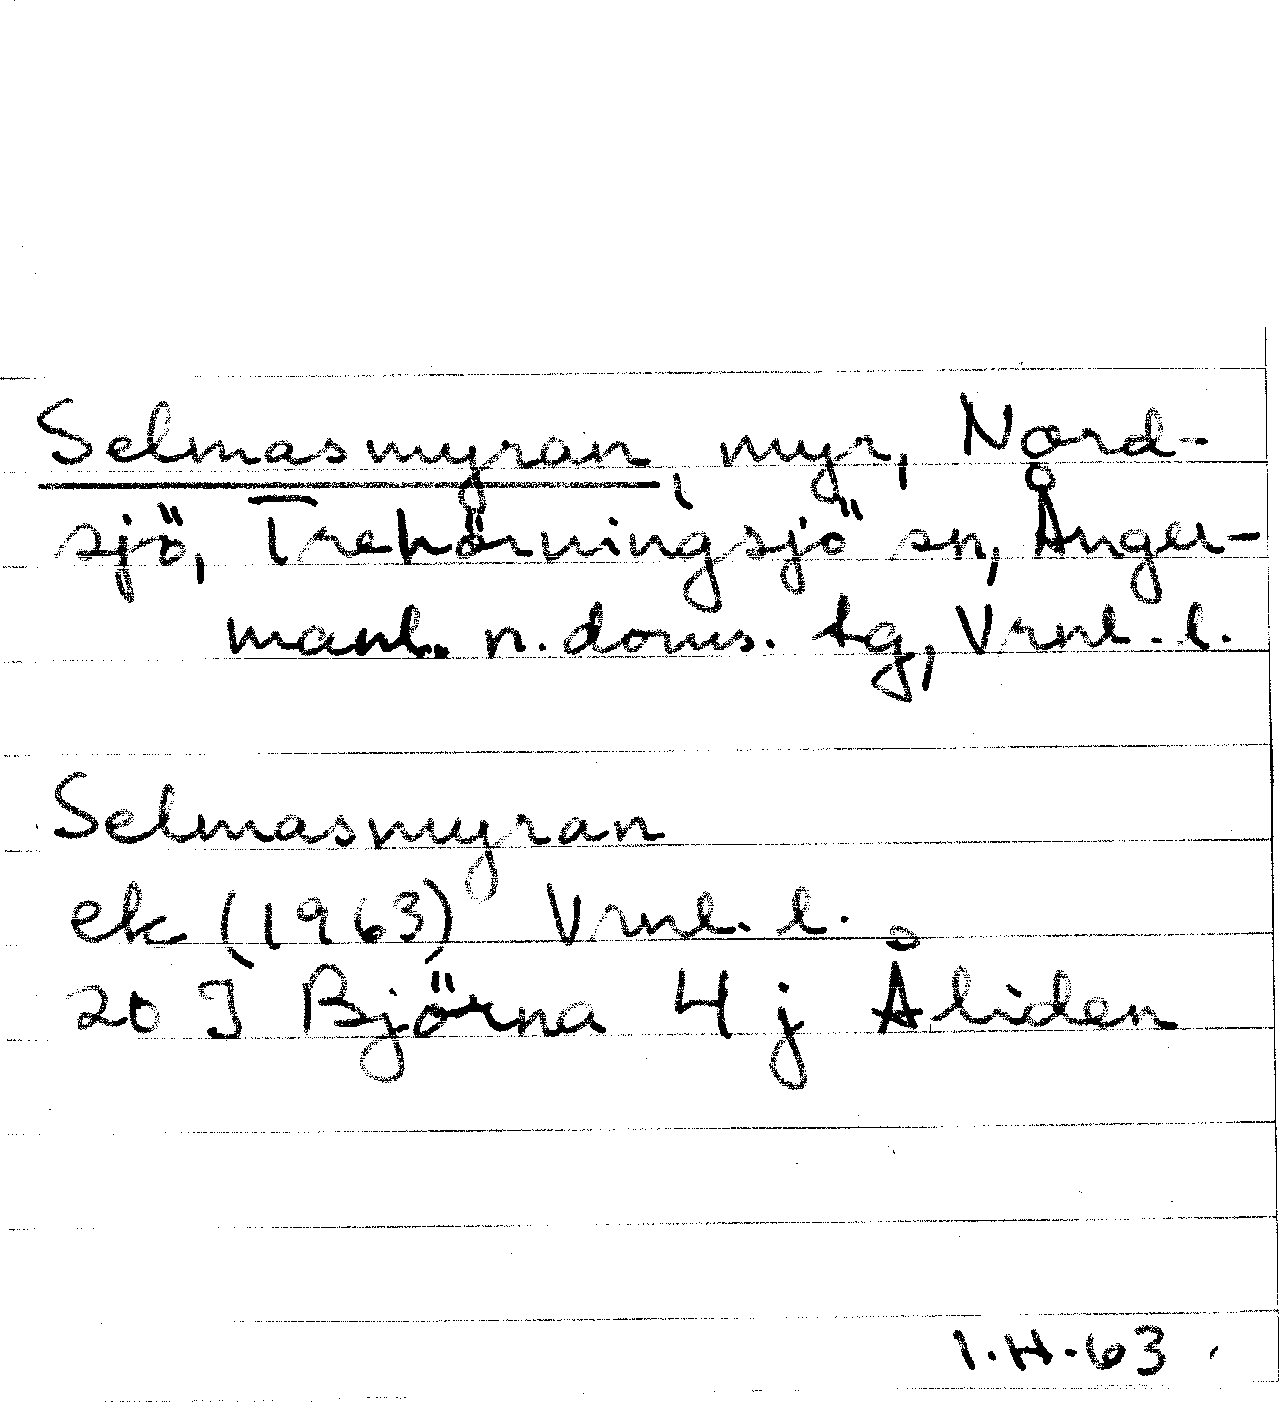 Selmasmyran, myr, Nord-
sjö, Trehörningsjö sn, Ånger-
manl. n. doms. tg, Vrnl. l.
Selmasmyran
ek (1963) Vrnl. l.
20 J Björna 4 j Åliden
I.H.63